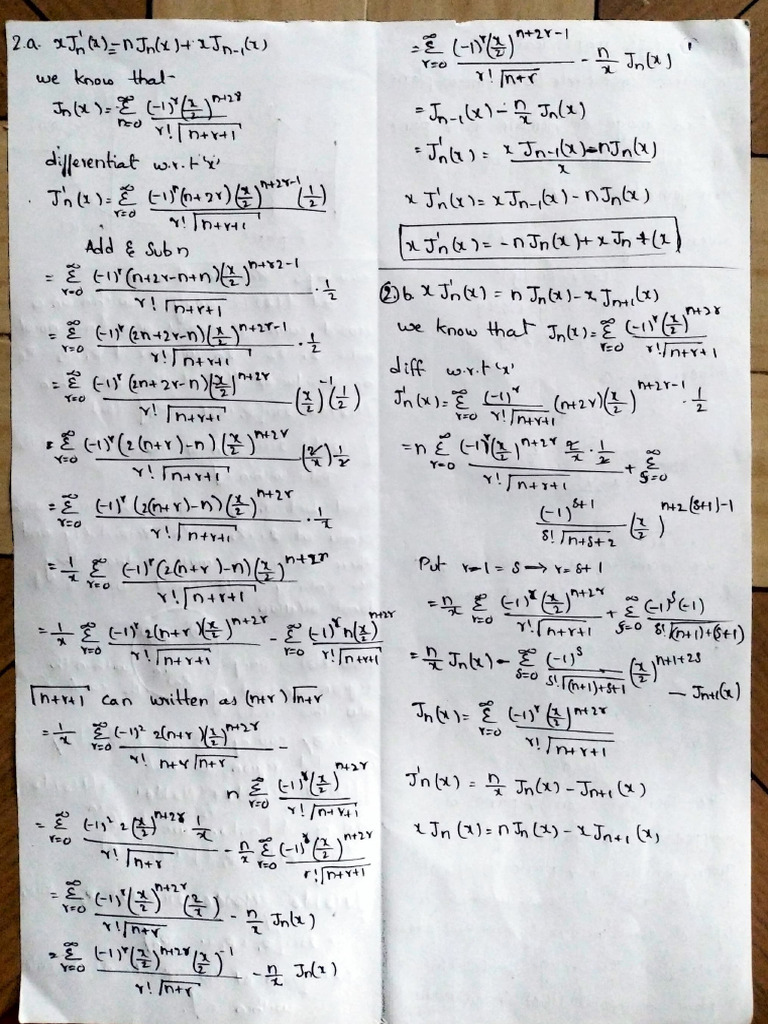 2.a. xJ'ₙ(x)=nJₙ(x)+xJₙ₋₁(x)
we know that
Jₙ(x)=∞Σn=0 (-1)^r(x/2)^(n+2r) / r!Γ(n+r+1)
differentiat w.r.t 'x'
J'ₙ(x)=∞Σr=0 (-1)^r(n+2r)(x/2)^(n+2r-1)(1/2) / r!Γ(n+r+1)
Add & Sub n
=∞Σr=0 (-1)^r(n+2r-n+n)(x/2)^(n+r2-1) / r!Γ(n+r+1) · 1/2
=∞Σr=0 (-1)^r(2n+2r-n)(x/2)^(n+2r-1) / r!Γ(n+r+1) · 1/2
=∞Σr=0 (-1)^r(2n+2r-n)(x/2)^(n+2r) / r!Γ(n+r+1) (x/2)^(-1)(1/2)
=∞Σr=0 (-1)^r(2(n+r)-n)(x/2)^(n+2r) / r!Γ(n+r+1) (2/x)1/2
=∞Σr=0 (-1)^r(2(n+r)-n)(x/2)^(n+2r) / r!Γ(n+r+1) · 1/x
=1/x ∞Σr=0 (-1)^r(2(n+r)-n)(x/2)^(n+2r) / r!Γ(n+r+1)
=1/x ∞Σr=0 (-1)^r 2(n+r)(x/2)^(n+2r) / r!Γ(n+r+1) - ∞Σr=0 (-1)^r n(x/2)^(n+2r) / r!Γ(n+r+1)
Γ(n+r+1) can written as (n+r)Γ(n+r)
=1/x ∞Σr=0 (-1)^2 2(n+r)(x/2)^(n+2r) / r! n+rΓ(n+r) -
n ∞Σr=0 (-1)^r(x/2)^(n+2r) / r!Γ(n+r+1)
=∞Σr=0 (-1)^2 2(x/2)^(n+2r) · 1/x / r!Γ(n+r) - n/x ∞Σr=0 (-1)^r(x/2)^(n+2r) / r!Γ(n+r+1)
=∞Σr=0 (-1)^r(x/2)^(n+2r)(2/x) / r!Γ(n+r) - n/x Jₙ(x)
=∞Σr=0 (-1)^r(x/2)^(n+2r)(x/2)^(-1) / r!Γ(n+r) - n/x Jₙ(x)
=∞Σr=0 (-1)^r(x/2)^(n+2r-1) / r!Γ(n+r) - n/x Jₙ(x)
=Jₙ₋₁(x)-n/x Jₙ(x)
=J'ₙ(x)= xJₙ₋₁(x)-nJₙ(x) / x
xJ'ₙ(x)=xJₙ₋₁(x)-nJₙ(x)
xJ'ₙ(x)=-nJₙ(x)+xJn-1(x)
2.b. xJ'ₙ(x)=nJₙ(x)-xJₙ₊₁(x)
we know that Jₙ(x)=∞Σr=0 (-1)^r(x/2)^(n+2r) / r!Γ(n+r+1)
diff w.r.t 'x'
J'ₙ(x)=∞Σr=0 (-1)^r / r!Γ(n+r+1) (n+2r)(x/2)^(n+2r-1) · 1/2
=n ∞Σr=0 (-1)^r(x/2)^(n+2r) 2/x · 1/2 / r!Γ(n+r+1) + ∞Σs=0
(-1)^(s+1) / s!Γ(n+s+2) (x/2)^(n+2(s+1)-1)
Put r-1=s→r=s+1
=n/x ∞Σr=0 (-1)^r(x/2)^(n+2r) / r!Γ(n+r+1) + ∞Σs=0 (-1)^s(-1) / s!Γ(n+1)+(s+1)
=n/x Jₙ(x) - ∞Σs=0 (-1)^s / s!Γ(n+1)+s+1 (x/2)^(n+1+2s) - Jₙ₊₁(x)
Jₙ(x)=∞Σr=0 (-1)^r(x/2)^(n+2r) / r!Γ(n+r+1)
J'ₙ(x)=n/x Jₙ(x)-Jₙ₊₁(x)
xJₙ(x)=nJₙ(x)-xJₙ₊₁(x)